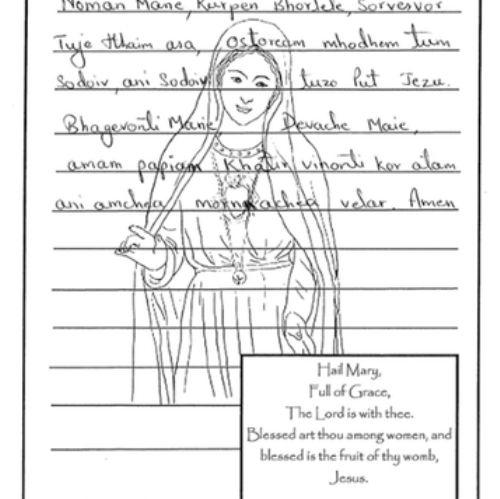 Noman Marie, Kurpen Bhorlele, Sorvesvor
Tuje thaim asa, ostoream mhodhem tum
Sodoiv, ani Sodoiv tuzo Put Jezu.
Bhagevonti Marie Devache Maie,
amam papiam Khatir vinonti kor atam
ani amchea mornachea velar. Amen
Hail Mary,
Full of Grace,
The Lord is with thee.
Blessed art thou among women, and
blessed is the fruit of thy womb,
Jesus.